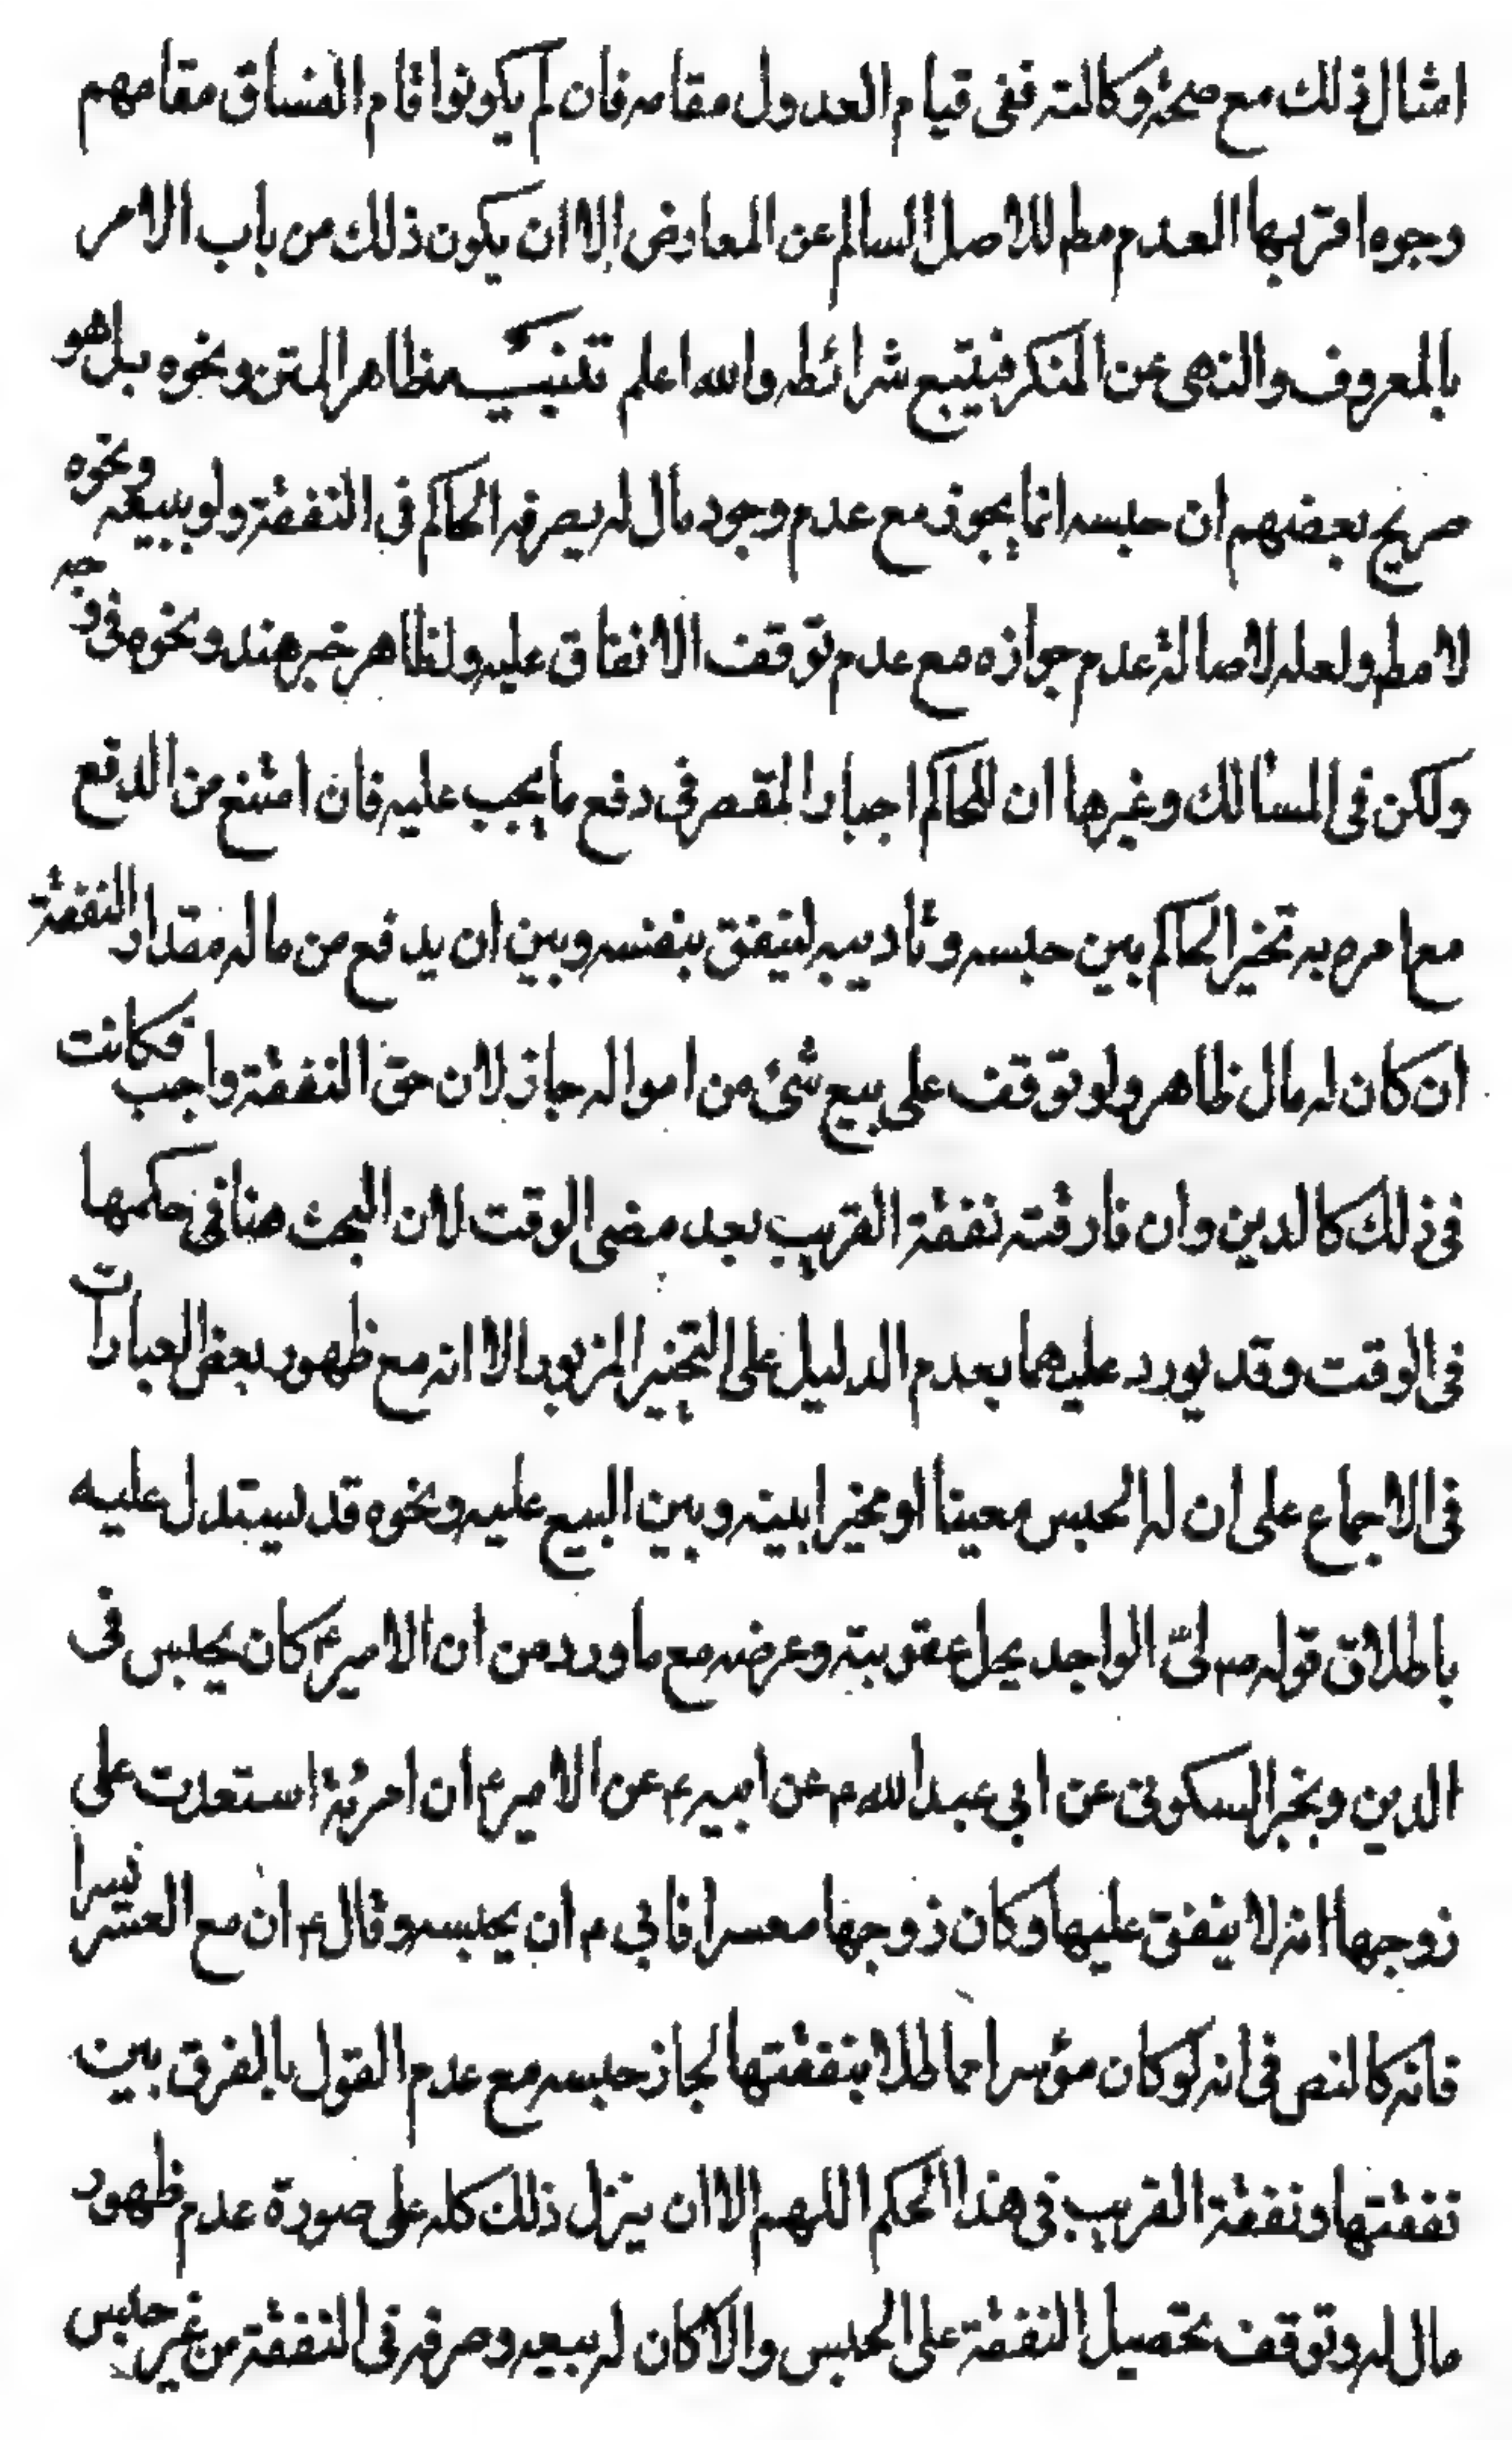 امثال ذلك مع صحة وكالته ففى قيام العدول مقامه فان لم يكونوا قام الفساق مقامهم
وجوه اقربها العدم مطم للاصل السالم عن المعارض إلا ان يكون ذلك من باب الامر
بالمعروف والنهى عن المنكر فيتبع شرائطه والله اعلم تنبيـه ظاهر المتن ونحوه بل هو
صريح بعضهم ان حبسه انما يجوز مع عدم وجود مال له يصرفه الحاكم فى النفقة ولو ببيعه ونحوه
لا مطم ولعله لاصالة عدم جوازه مع عدم توقف الانفاق عليه ولظاهر خبر هند ونحوه فى وجه
ولكن فى المسالك وغيرها ان للحاكم اجبار المقصر فى دفع ما يجب عليه فان امتنع من الدفع
مع امره به تخير الحاكم بين حبسه وتأديبه لينفق بنفسه وبين ان يدفع من ماله مقدار النفقة
ان كان له مال ظاهر ولو توقف على بيع شئ من امواله جاز لان حق النفقة واجب فكانت
فى ذلك كالدين وان فارقته نفقة القريب بعد مضى الوقت لان البحث هنا فى حكمها
فى الوقت وقد يورد عليهما بعدم الدليل على التخيير المزبور الا انه مع ظهور بعض العبارات
فى الاجماع على ان له الحبس معينا او مخيرا بينه وبين البيع عليه ونحوه قد يستدل عليه
باطلاق قوله صه لىّ الواجد يحل عقوبته وعرضه مع ما ورد من ان الامير ع كان يحبس فى
الدين وبخبر السكونى عن ابى عبد الله ع عن ابيه ع عن الامير ع ان امرئة استعدت على
زوجها انه لا ينفق عليها وكان زوجها معسرا فابي ع ان يحبسه وقال ع ان مع العسر يسرا
فانه كالنص فى انه لو كان مؤسرا مماطلا بنفقتها لجاز حبسه مع عدم القول بالفرق بين
نفقتها ونفقة القريب فى هذا الحكم اللهم الا ان ينزل ذلك كله على صورة عدم ظهور
مال له وتوقف تحصيل النفقة على الحبس والا كان له بيعه وصرفه فى النفقة من غير حبس